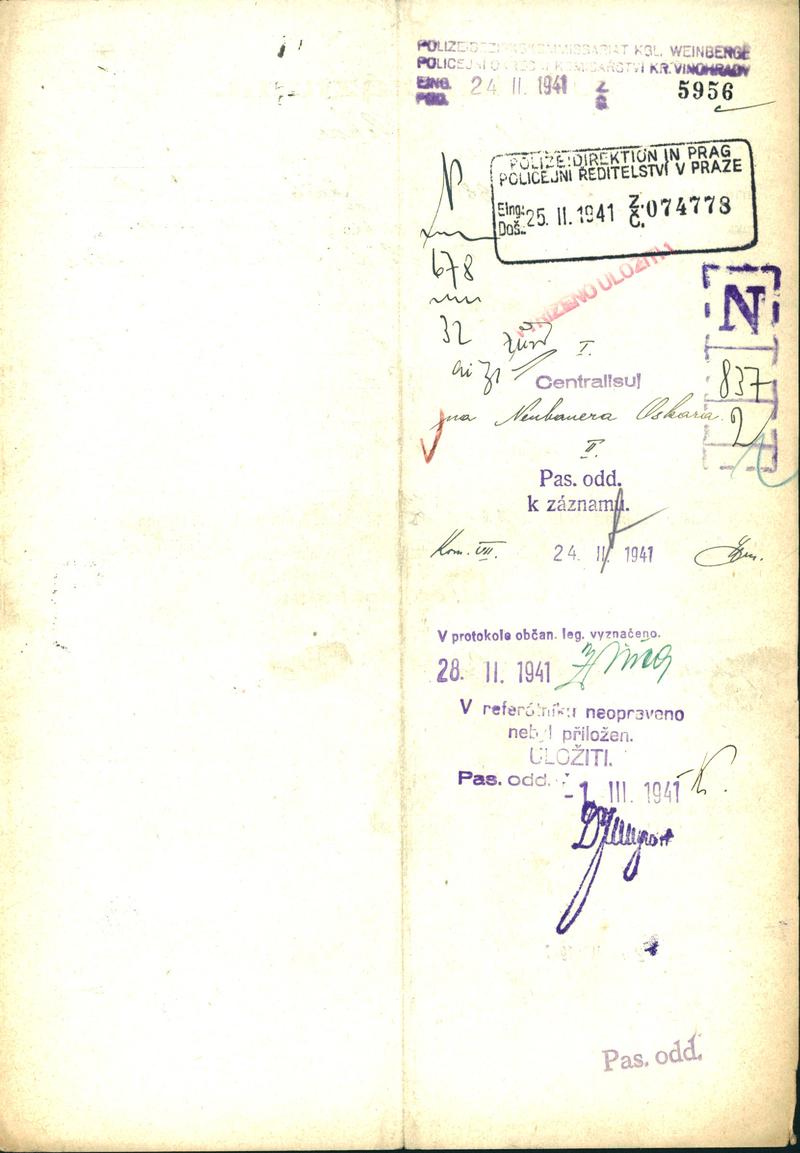 POLIZEIBEZIRKSKOMMISSARIAT KGL. WEINBERGE
POLICEJNÍ OKRESNÍ KOMISAŘSTVÍ KR. VINOHRADY
EING. 24. II. 1941 Z. 5956
POD. Č.
N
POLIZEIDIREKTION IN PRAG
POLICEJNÍ ŘEDITELSTVÍ V PRAZE
Eing: 25. II. 1941 Z. 074778
Doš.: Č.
678
VYŘÍZENO ULOŽITI
N
32
I.
Centralisuj
837
na Neubauera Oskara.
2
II.
Pas. odd.
k záznamu.
Kom. VII. 24. II. 1941
V protokole občan. leg. vyznačeno.
28. II. 1941
V referátníku neopraveno
nebyl přiložen.
ULOŽITI.
Pas. odd. -1. III. 1941
Pas. odd.